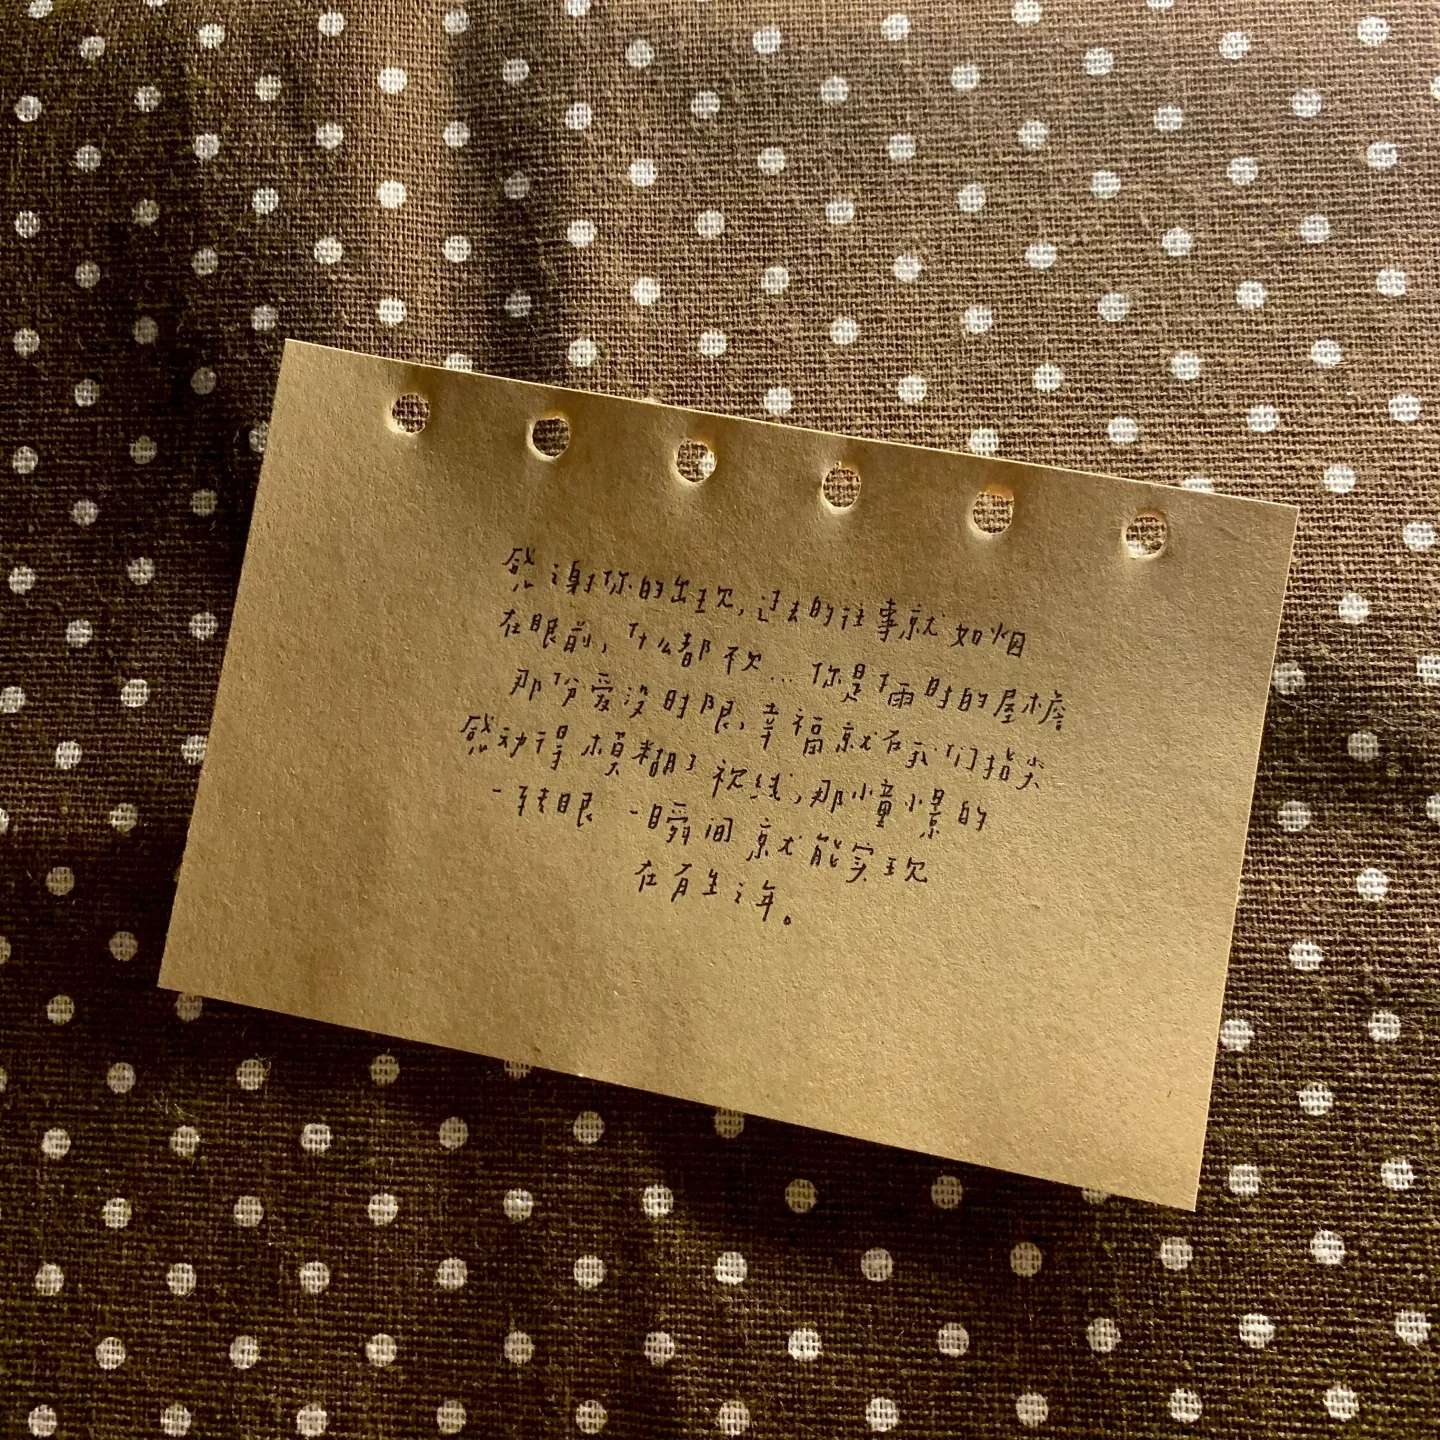 感谢你的出现,过去的往事就如烟
在眼前,什么都不欠...你是下雨时的屋檐
那份爱没时限,幸福就在我们指尖
感动得模糊了视线,那憧憬的
一转眼 一瞬间 就能实现
在有生之年。